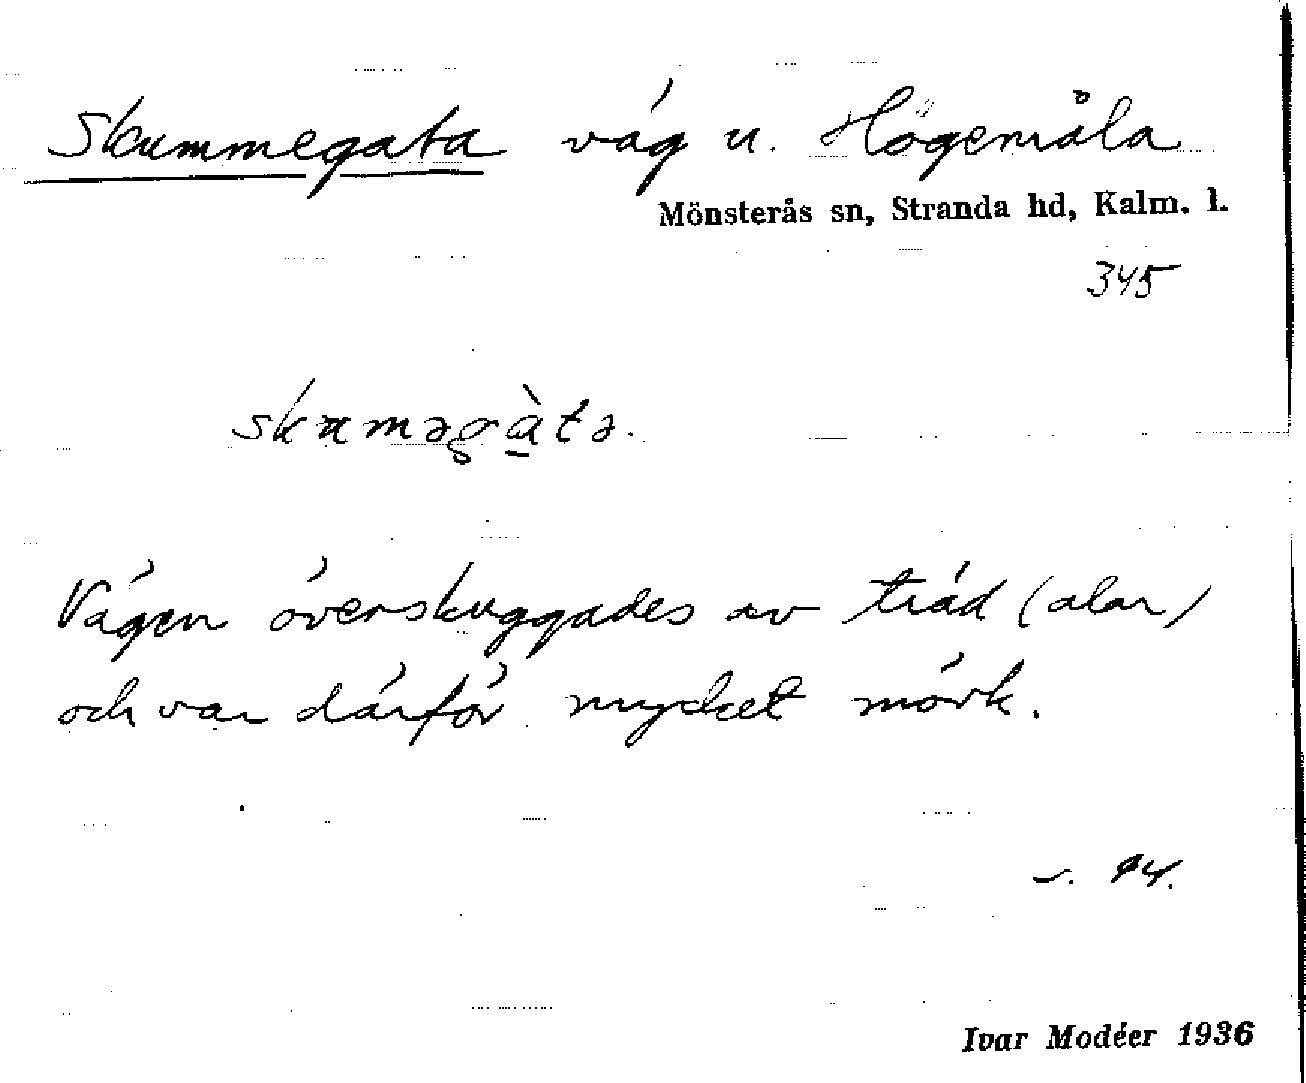 Skummegata väg u. Högemåla
Mönsterås sn, Stranda hd, Kalm. l.
345
skuməgàtə.
Vägen överskuggades av träd (alar)
och var därför mycket mörk.
Ivar Modéer 1936